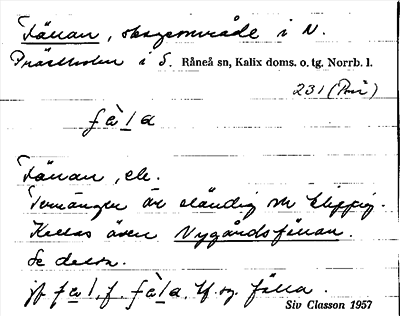 Fänan, skogsområde i N.
Prästholm i S. Råneå sn, Kalix doms. o. tg. Norrb. l.
231 (Pm)
fàla
Fänan, ek.
Terrängen är eländig och klippig.
Kallas även Nygårdsfänan.
Se detta.
jf fal, f. fàla, fälla.
Siv Classon 1957